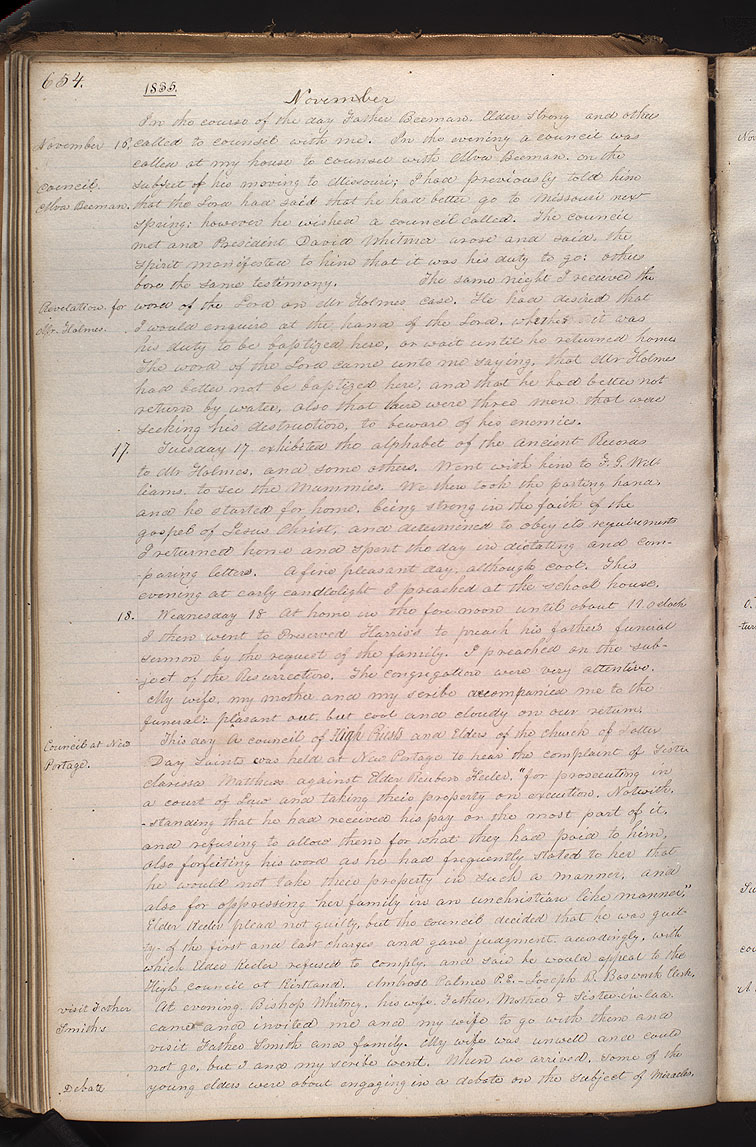 654.
1835.
November
In the course of the day Father Beeman. Elder Strong and others
November 16, called to counsel with me. In the evening a council was
called at my house to counsel with Alva Beeman. on the
Council. subject of his moving to Missouri; I had previously told him
Alva Beeman. that the Lord had said that he had better go to Missouri next
Spring: however he wished a council called. The council
met and President David Whitmer arose and said, the
Spirit manifested to him that it was his duty to go: others
bore the same testimony. The same night I received the
Revelation for word of the Lord on Mr Holmes case. He had desired that
Mr. Holmes. I would enquire at the hand of the Lord, whether it was
his duty to be baptized here, or wait until he returned home
The word of the Lord came unto me saying, that Mr Holmes
had better not be baptized here, and that he had better not
return by water, also that there were three men that were
seeking his destruction, to beware of his enemies.
17. Tuesday 17 exhibited the alphabet of the ancient Records
to Mr Holmes, and some others. Went with him to F. G. Wil-
liams, to see the Mummies. We then took the parting hand,
and he started for home, being strong in the faith of the
gospel of Jesus Christ, and determined to obey its requirements
I returned home and spent the day in dictating and com-
-paring letters. A fine pleasant day, although cool. This
evening at early candlelight I preached at the school house.
18. Wednesday 18 At home in the fore-noon until about 11 oclock
I then went to Preserved Harris's to preach his father's funeral
sermon by the request of the family. I preached on the sub-
-ject of the Resurrection. The congregation were very attentive.
My wife, my mother and my scribe accompanied me to the
funeral: pleasant out, but cool and cloudy on our return.
Council at New This day a council of High Priests and Elders of the church of Latter
Portage. Day Saints was held at New Portage to hear the complaint of Sister
Clarissa Matthews against Elder Reuben Keeler, "for prosecuting in
a court of Law and taking their property on execution. Notwith,
-standing that he had received his pay or the most part of it,
and refusing to allow them for what they had paid to him,
also forfeiting his word as he had frequently stated to her that
he would not take their property in such a manner, and
also for oppressing her family in an unchristian like manner,"
Elder Keeler plead not guilty, but the council decided that he was guil-
ty of the first and last charges and gave judgment accordingly, with
which Elder Keeler refused to comply, and said he would appeal to the
High council at Kirtland. Ambrose Palmer P.E.- Joseph B. Bosworth Clerk.
visit Father At evening, Bishop Whitney, his wife, Father, Mother & Sister-in-law
Smith's came and invited me and my wife to go with them and
visit Father Smith and family. My wife was unwell and could
not go, but I and my scribe went. When we arrived, some of the
Debate young elders were about engaging in a debate on the subject of Miracles.